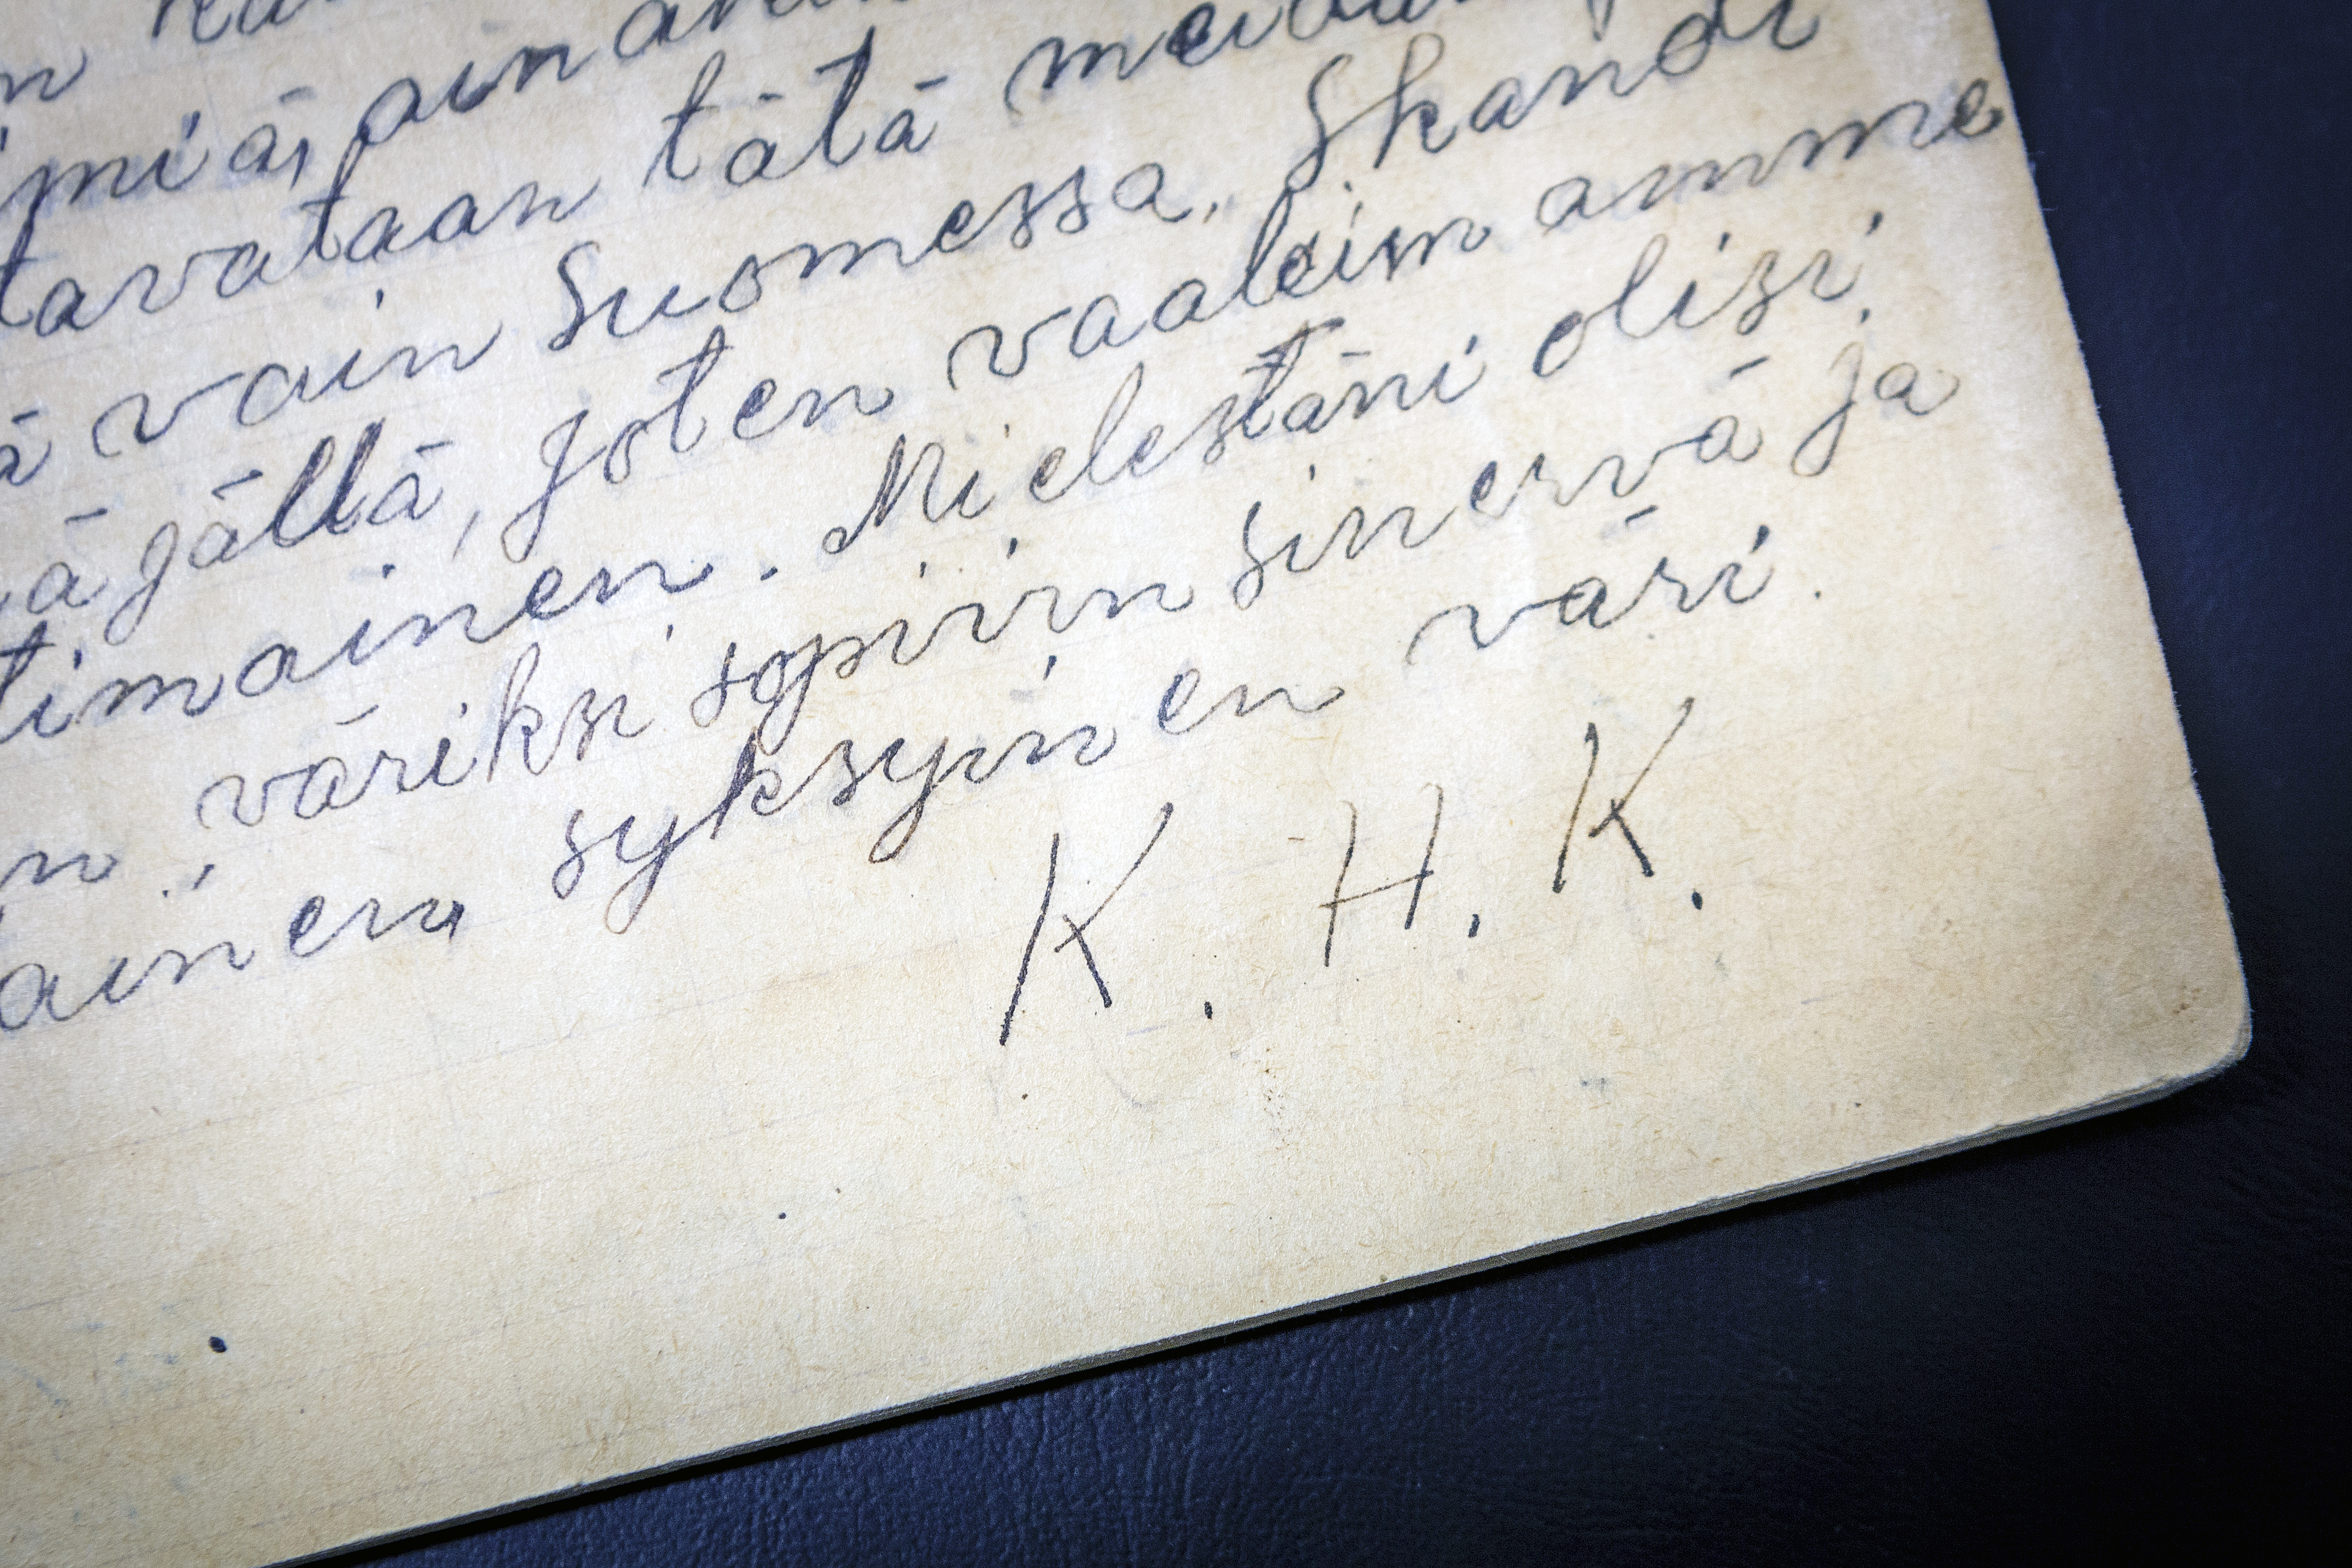 tavataan tätä
vain Suomessa. Skandi
jällä, joten vaalein amme
timainen. Mielestäni olisi
väriksi sopivin sinervä ja
ainen syksyinen väri.
K. H. K.